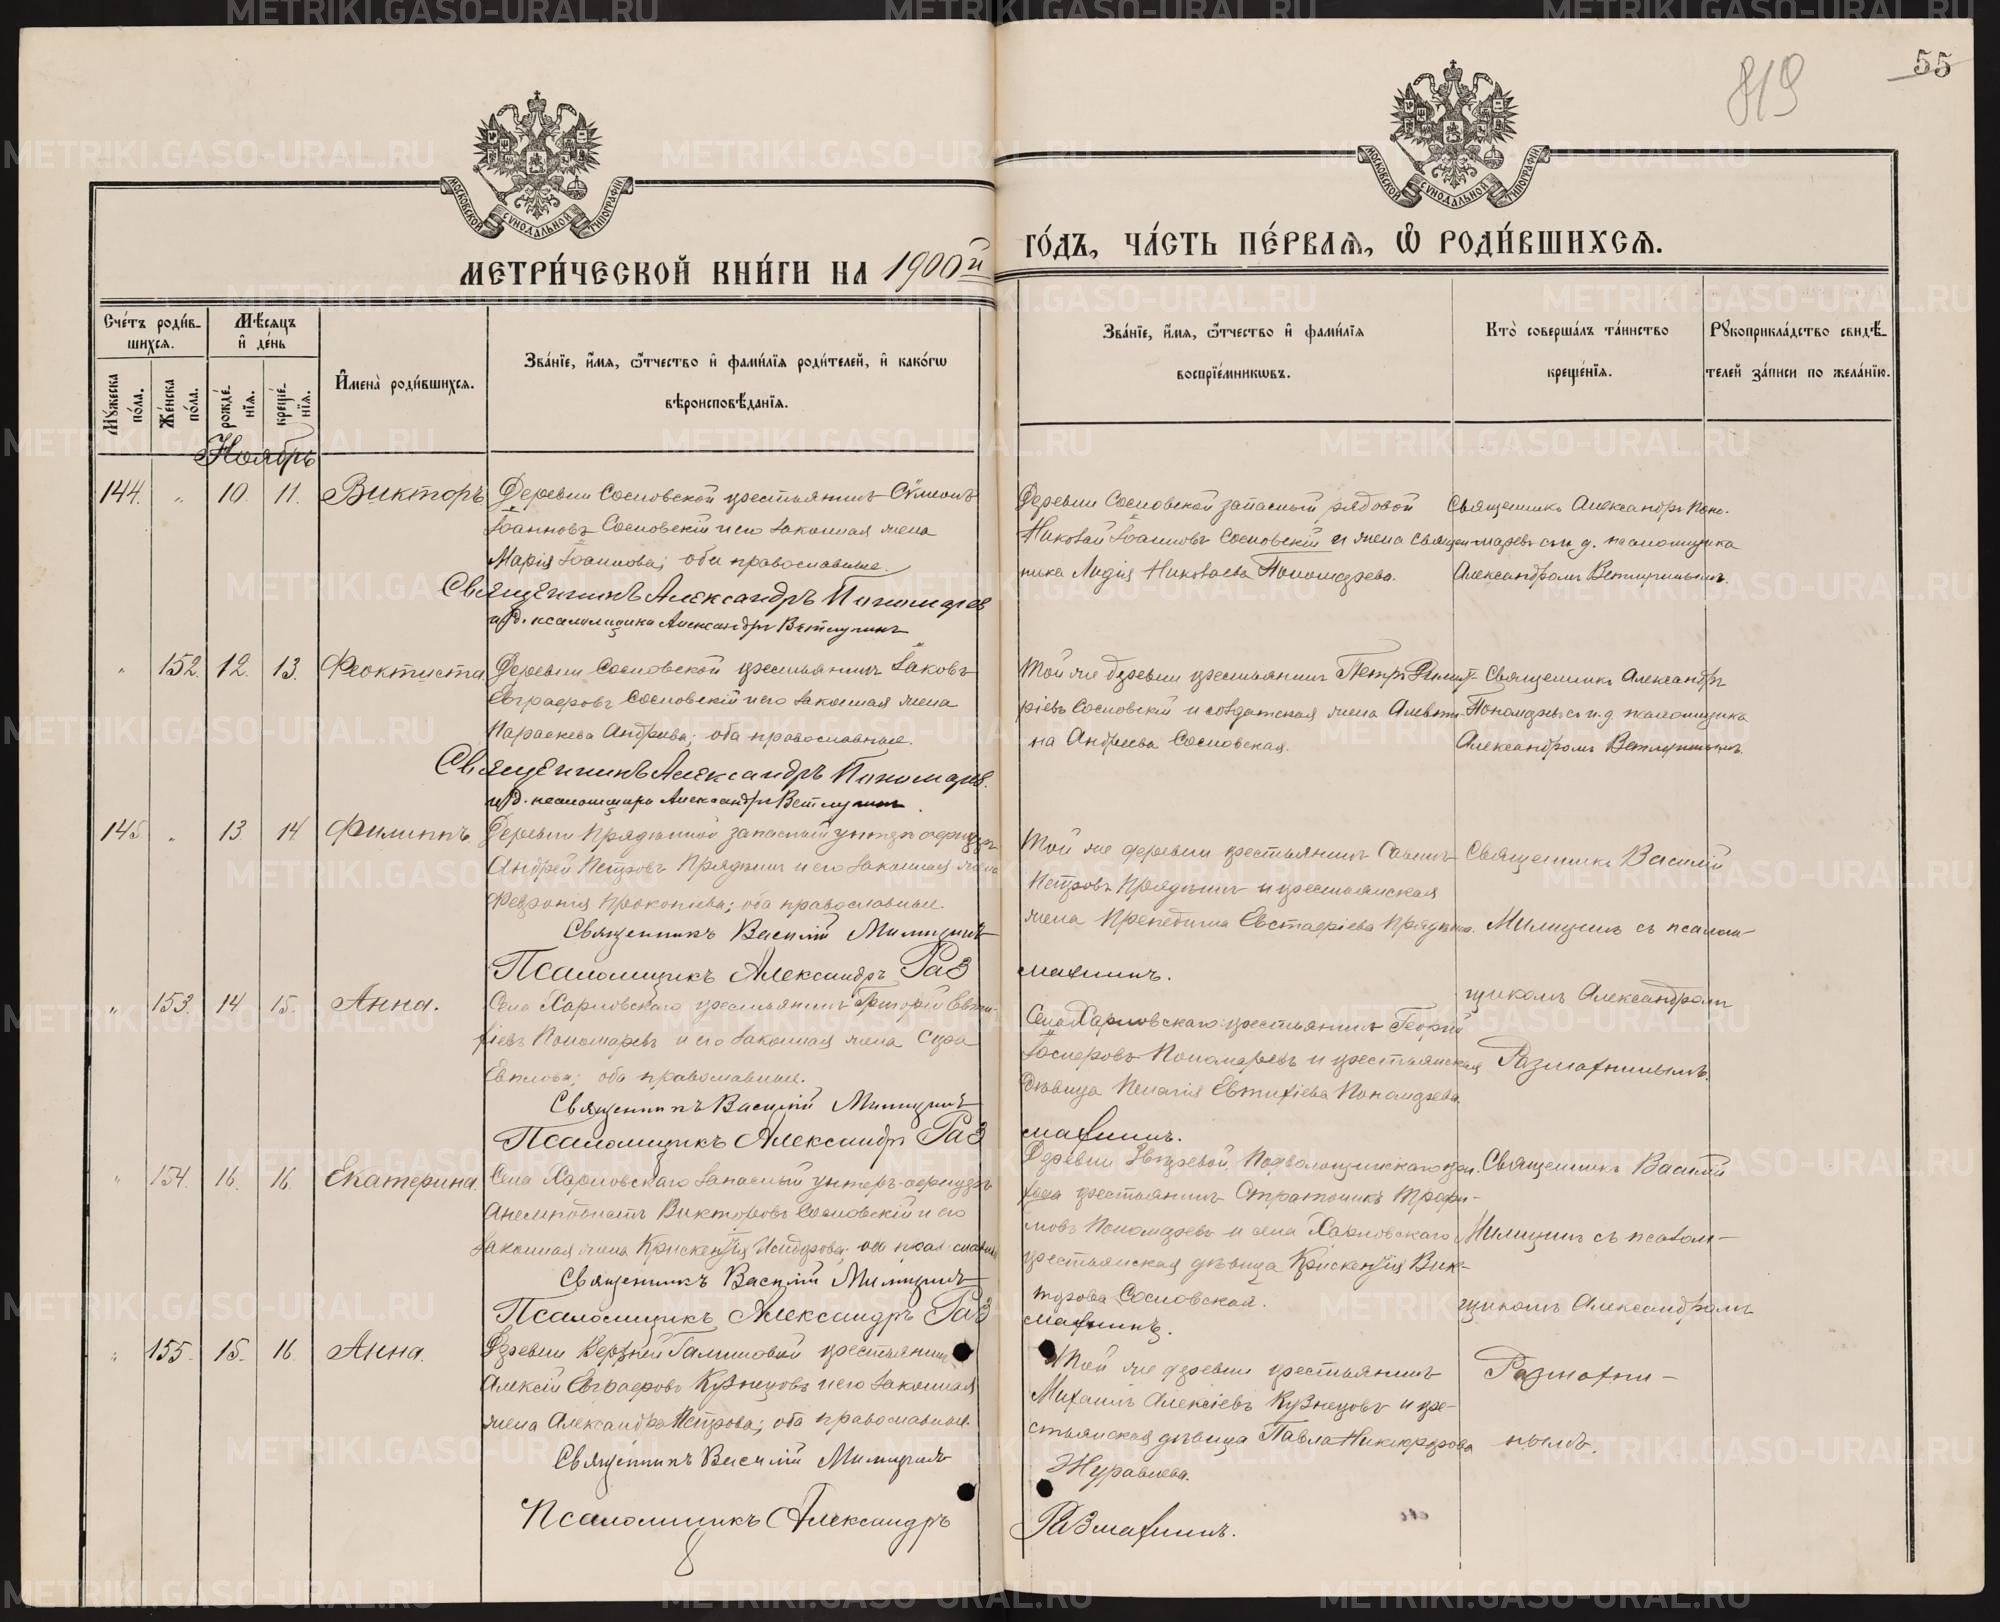 819
55
МОСКОВСКОЙ СѴНОДАЛЬНОЙ ТИПОГРАФІИ
МОСКОВСКОЙ СѴНОДАЛЬНОЙ ТИПОГРАФІИ
МЕТРИ́ЧЕСКОЙ КНИ́ГИ НА 1900й
ГО́ДЪ, ЧА́СТЬ ПЕ́РВАѦ, Ѽ РОДИ́ВШИХСѦ.
Сче́тъ роди́в-
шихсѧ.
Мѣ́сѧцъ
и҆ де́нь
Мꙋ́жеска
по́ла.
Же́нска
по́ла.
рожде́-
нїѧ.
креще́-
нїѧ.
И҆мена̀ роди́вшихсѧ.
Зва́нїе, и҆́мѧ, ѻ҆́тчество и҆ фами́лїѧ роди́телей, и҆ како́гѡ
вѣроисповѣ́данїѧ.
Зва́нїе, и҆́мѧ, ѻ҆́тчество и҆ фами́лїѧ
воспрїе́мникѡвъ.
Кто̀ соверша́лъ та́инство
креще́нїѧ.
Рꙋкоприкла́дство свидѣ́-
телей за́писи по жела́нїю.
Ноябрь
144. „ 10. 11. Викторъ
Деревни Сосновской крестьянинъ Сѵмеонъ
Іоанновъ Сосновскій и его законная жена
Марія Іоаннова; оба православные.
Священникъ Александръ Пономарев
и.д. псаломщика Александръ Ветлугинъ
Деревни Сосновской запасный рядовой
Николай Іоанновъ Сосновскій и жена священ-
ника Лидія Николаева Пономарева.
Священникъ Александръ Поно-
маревъ съ и. д. псаломщика
Александромъ Ветлугинымъ.
„ 152. 12. 13. Феоктиста.
Деревни Сосновской крестьянинъ Іаковъ
Евграфовъ Сосновскій и его законная жена
Параскева Андреева; оба православные.
Священникъ Александръ Пономарев.
и.д. псаломщика Александръ Ветлугинъ.
Той же деревни крестьянинъ Петръ
ріевъ Сосновскій и солдатская жена Алевти-
на Андреева Сосновская.
Священникъ Александръ
Пономаревъ съ и. д. псаломщика
Александромъ Ветлугинымъ.
145. „ 13. 14 Филиппъ.
Деревни Прядкиной запасный унтеръ офицеръ
Андрей Петровъ Прядкинъ и его законная жена
Февронія Прокопіева; оба православные.
Священникъ Василій Милицинъ
Псаломщикъ Александръ Раз
Той же деревни крестьянинъ
Петровъ Прядкинъ и крестьянская
жена Препедигна Евстафіева Прядкина.
махнинъ.
Священникъ Василій
Милицинъ съ псалом-
щикомъ Александромъ
Размахнинымъ.
„ 153. 14. 15. Анна.
Села Харловскаго крестьянинъ Григорій Евти-
хіевъ Пономаревъ и его законная жена Сура
Евплова; оба православные.
Священникъ Василій Милицинъ
Псаломщикъ Александръ Раз
Села Харловскаго крестьянинъ Георгій
Іосифовъ Пономаревъ и крестьянская
дѣвица Пелагія Евтихіева Пономарева.
махнинъ.
„ 154. 16. 16. Екатерина.
Села Харловскаго запасный унтеръ-офицеръ
Анемподистъ Викторовъ Сосновскій и его
законная жена Крискентія Исидорова; оба православные
Священникъ Василій Милицинъ
Псаломщикъ Александръ Раз
Деревни
крестьянинъ Стратоникъ Трофи-
мовъ Пономаревъ и села Харловскаго
крестьянская дѣвица Крискентія Вик-
торова Сосновская.
махнинъ.
Священникъ Василій
Милицинъ съ псалом-
щикомъ Александромъ
Размахни-
нымъ.
„ 155. 15. 16. Анна.
Деревни Верхней Галишовой крестьянинъ
Алексій Евграфовъ Кузнецовъ и его законная
жена Александра Петрова; оба православные.
Священникъ Василій Милицинъ
Псаломщикъ Александръ
Той же деревни крестьянинъ
Михаилъ Алексіевъ Кузнецовъ и кре-
стьянская дѣвица Павла Никифорова
Журавлева.
Размахнинъ.
8
METRIKI.GASO-URAL.RU